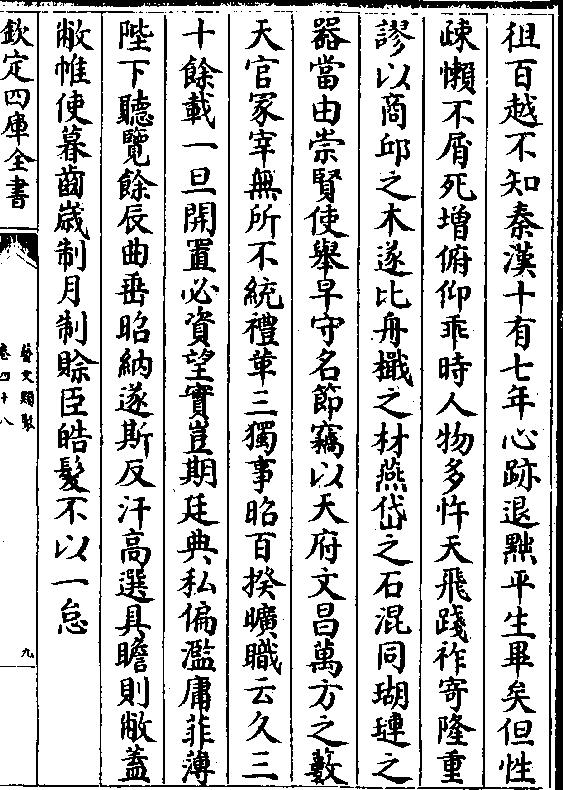 徂百越不知秦漢十有七年心跡退黜平生畢矣但性
疎懶不屑死増俯仰乖時人物多忤天飛踐祚寄隆重
謬以商邱之木遂比舟檝之材燕岱之石混同瑚璉之
器當由崇賢使舉早守名節竊以天府文昌萬方之藪
天官冢宰無所不統禮華三獨事昭百揆曠職云久三
十餘載一旦開置必資望實豈期廷典私偏濫庸菲薄
陛下聽覽餘辰曲垂昭納遂斯反汗高選具瞻則敝蓋
敝帷使暮齒嵗制月制賒臣皓髪不以一怠
欽定四庫全書
藝文類聚
卷四十八
九